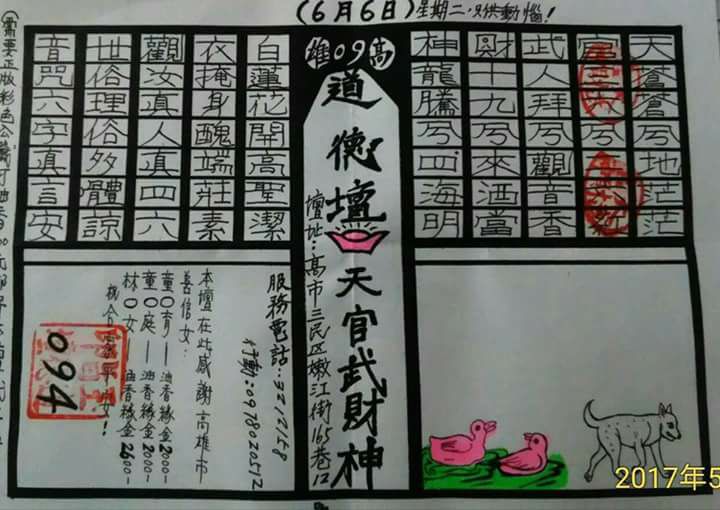 (6月6日)星期二.只供動惱!
天蒼蒼兮地茫茫
武人拜兮觀音香
財十九兮來洒當
神龍騰兮四海明
高09雄
道德壇天官武財神
壇址:高市三民区嫩江街165巷12
白蓮花開高聖潔
衣掩身醜端莊素
觀汝真人真四六
世俗理俗多體諒
音咒六字真言安
服務電話:3212158
行動:0978020512
本壇在此感謝高雄市
善信女:
童〇育—油香緣金2000-
童〇庭—油香緣金2000-
林〇女—油香緣金2600-
094
2017年5